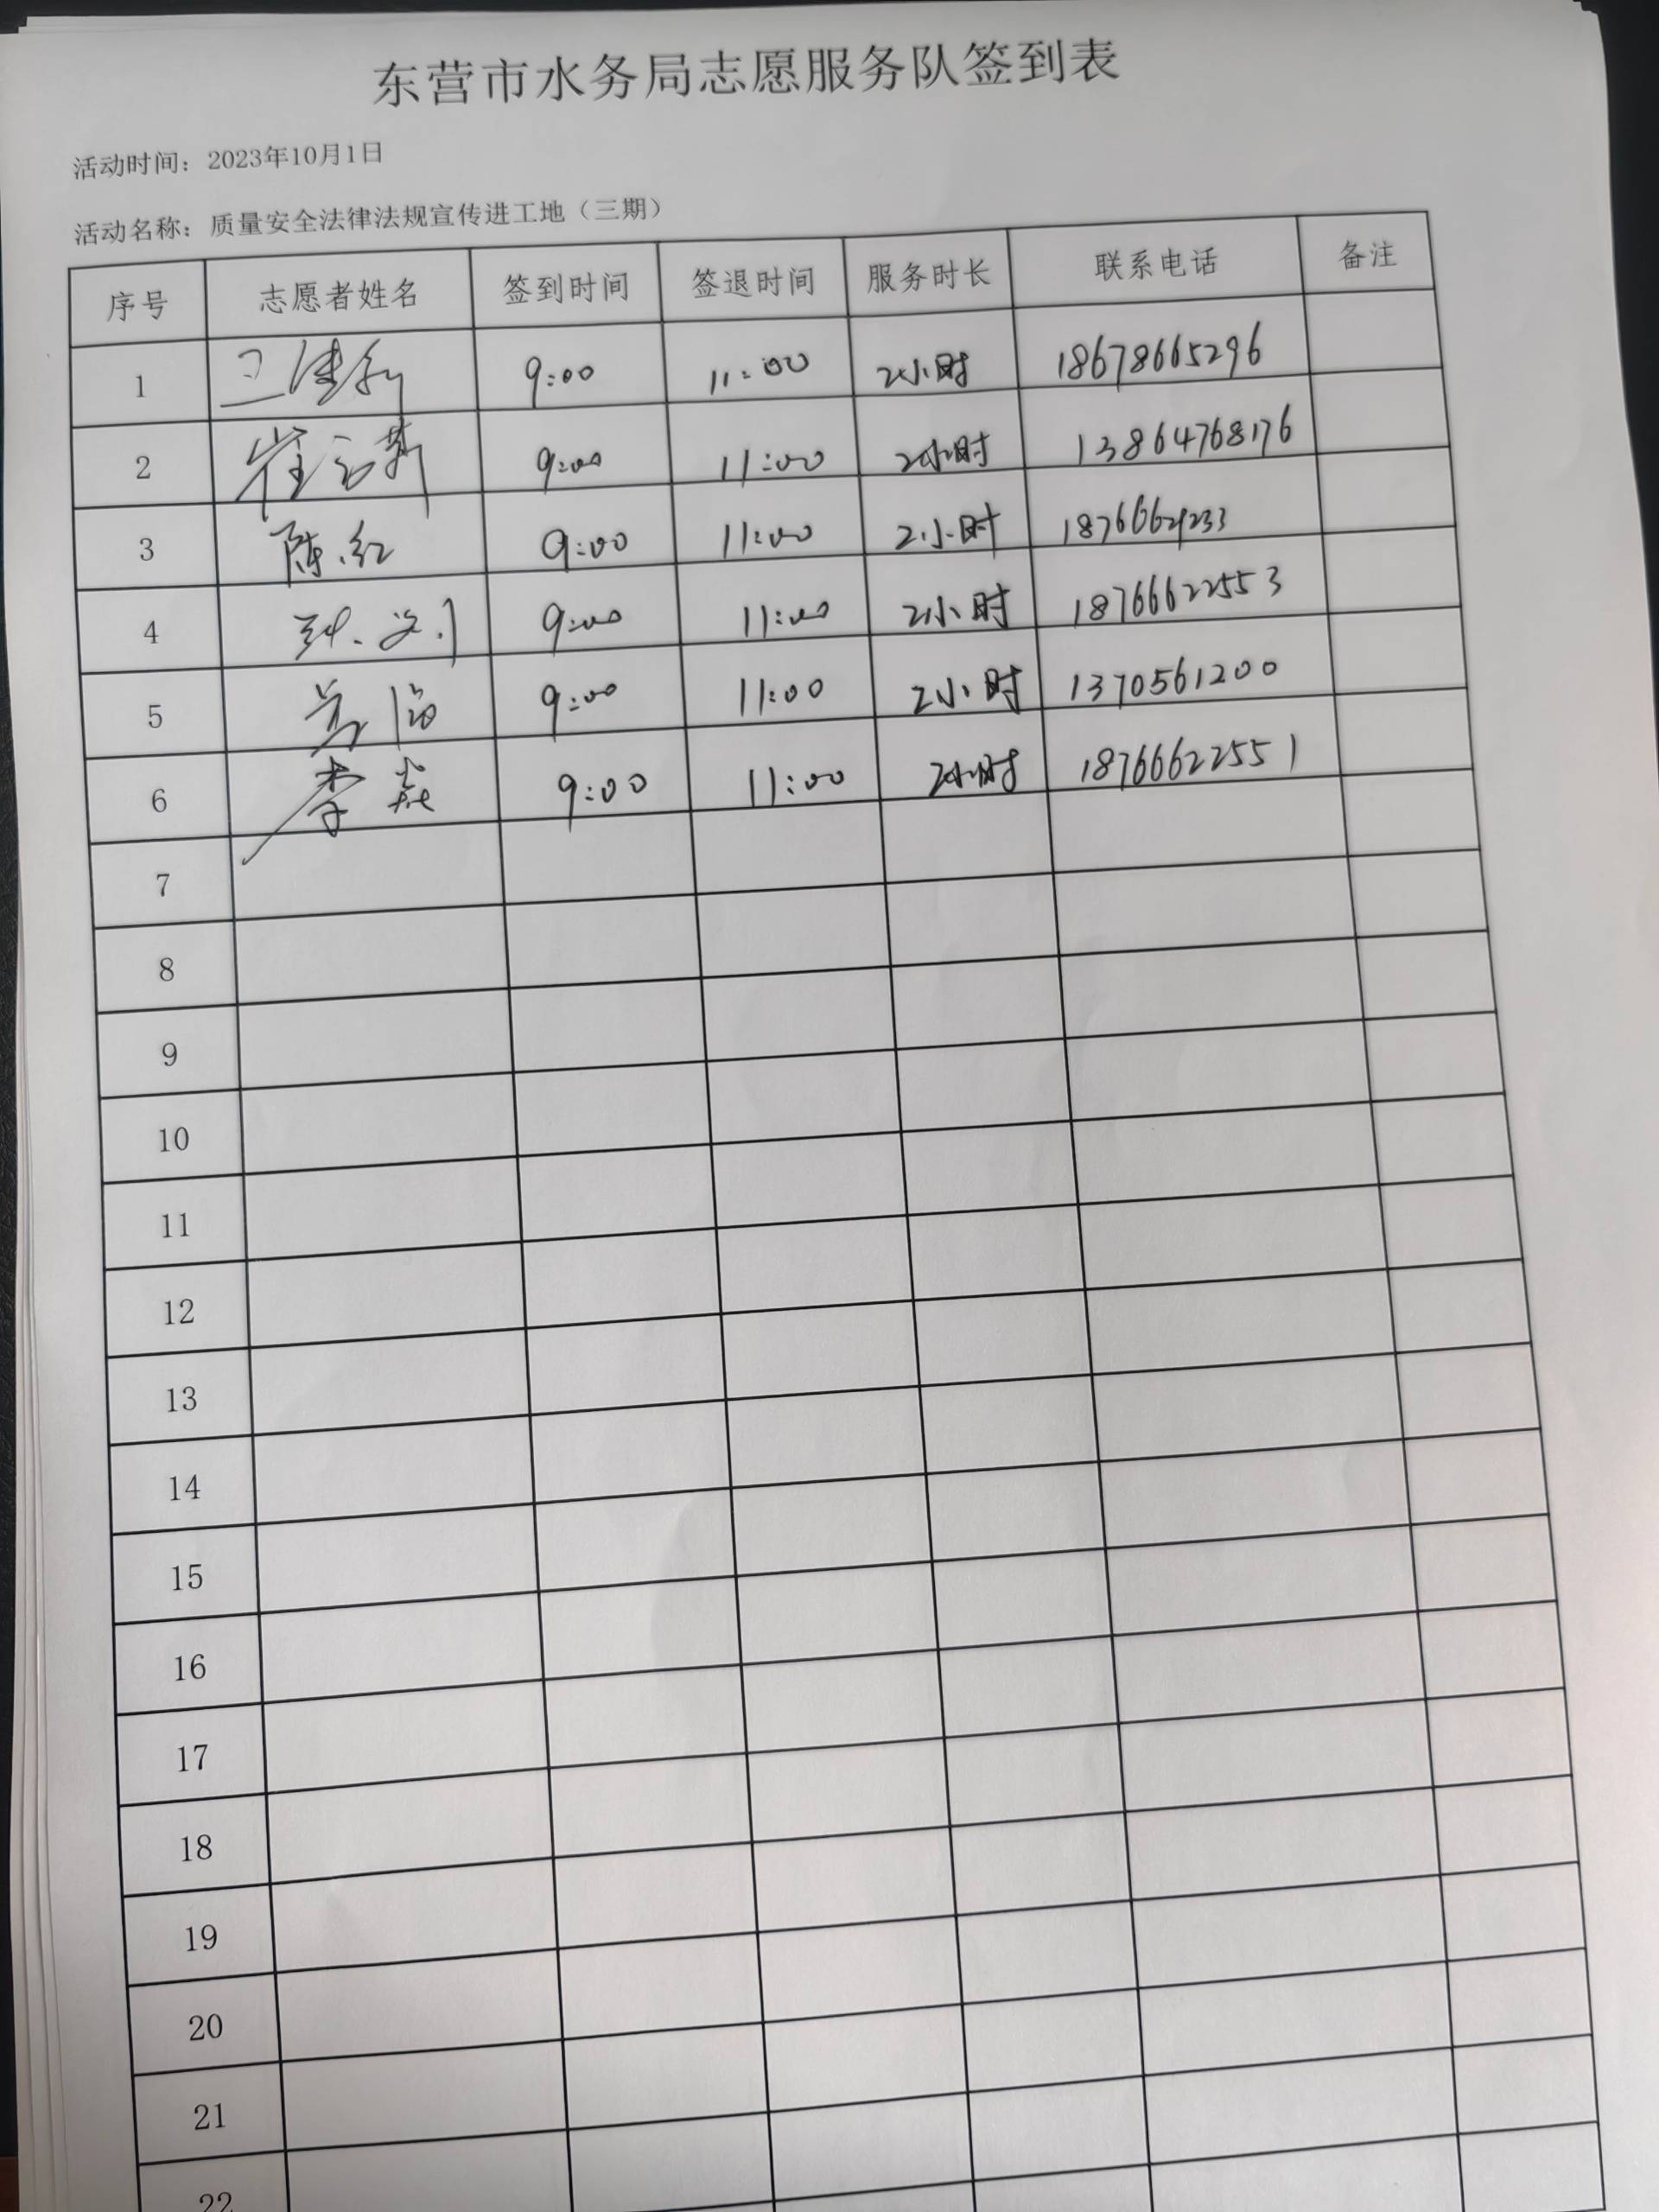 东营市水务局志愿服务队签到表
活动时间：2023年10月1日
活动名称：质量安全法律法规宣传进工地（三期）
序号 志愿者姓名 签到时间 签退时间 服务时长 联系电话 备注
1 9:00 11:00 2小时 18678665296
2 9:00 11:00 2小时 13864768176
3 陈红 9:00 11:00 2小时
4 9:00 11:00 2小时 18766622553
5 9:00 11:00 2小时 1370561200
6 李焱 9:00 11:00 2小时 18766622551
7
8
9
10
11
12
13
14
15
16
17
18
19
20
21
22